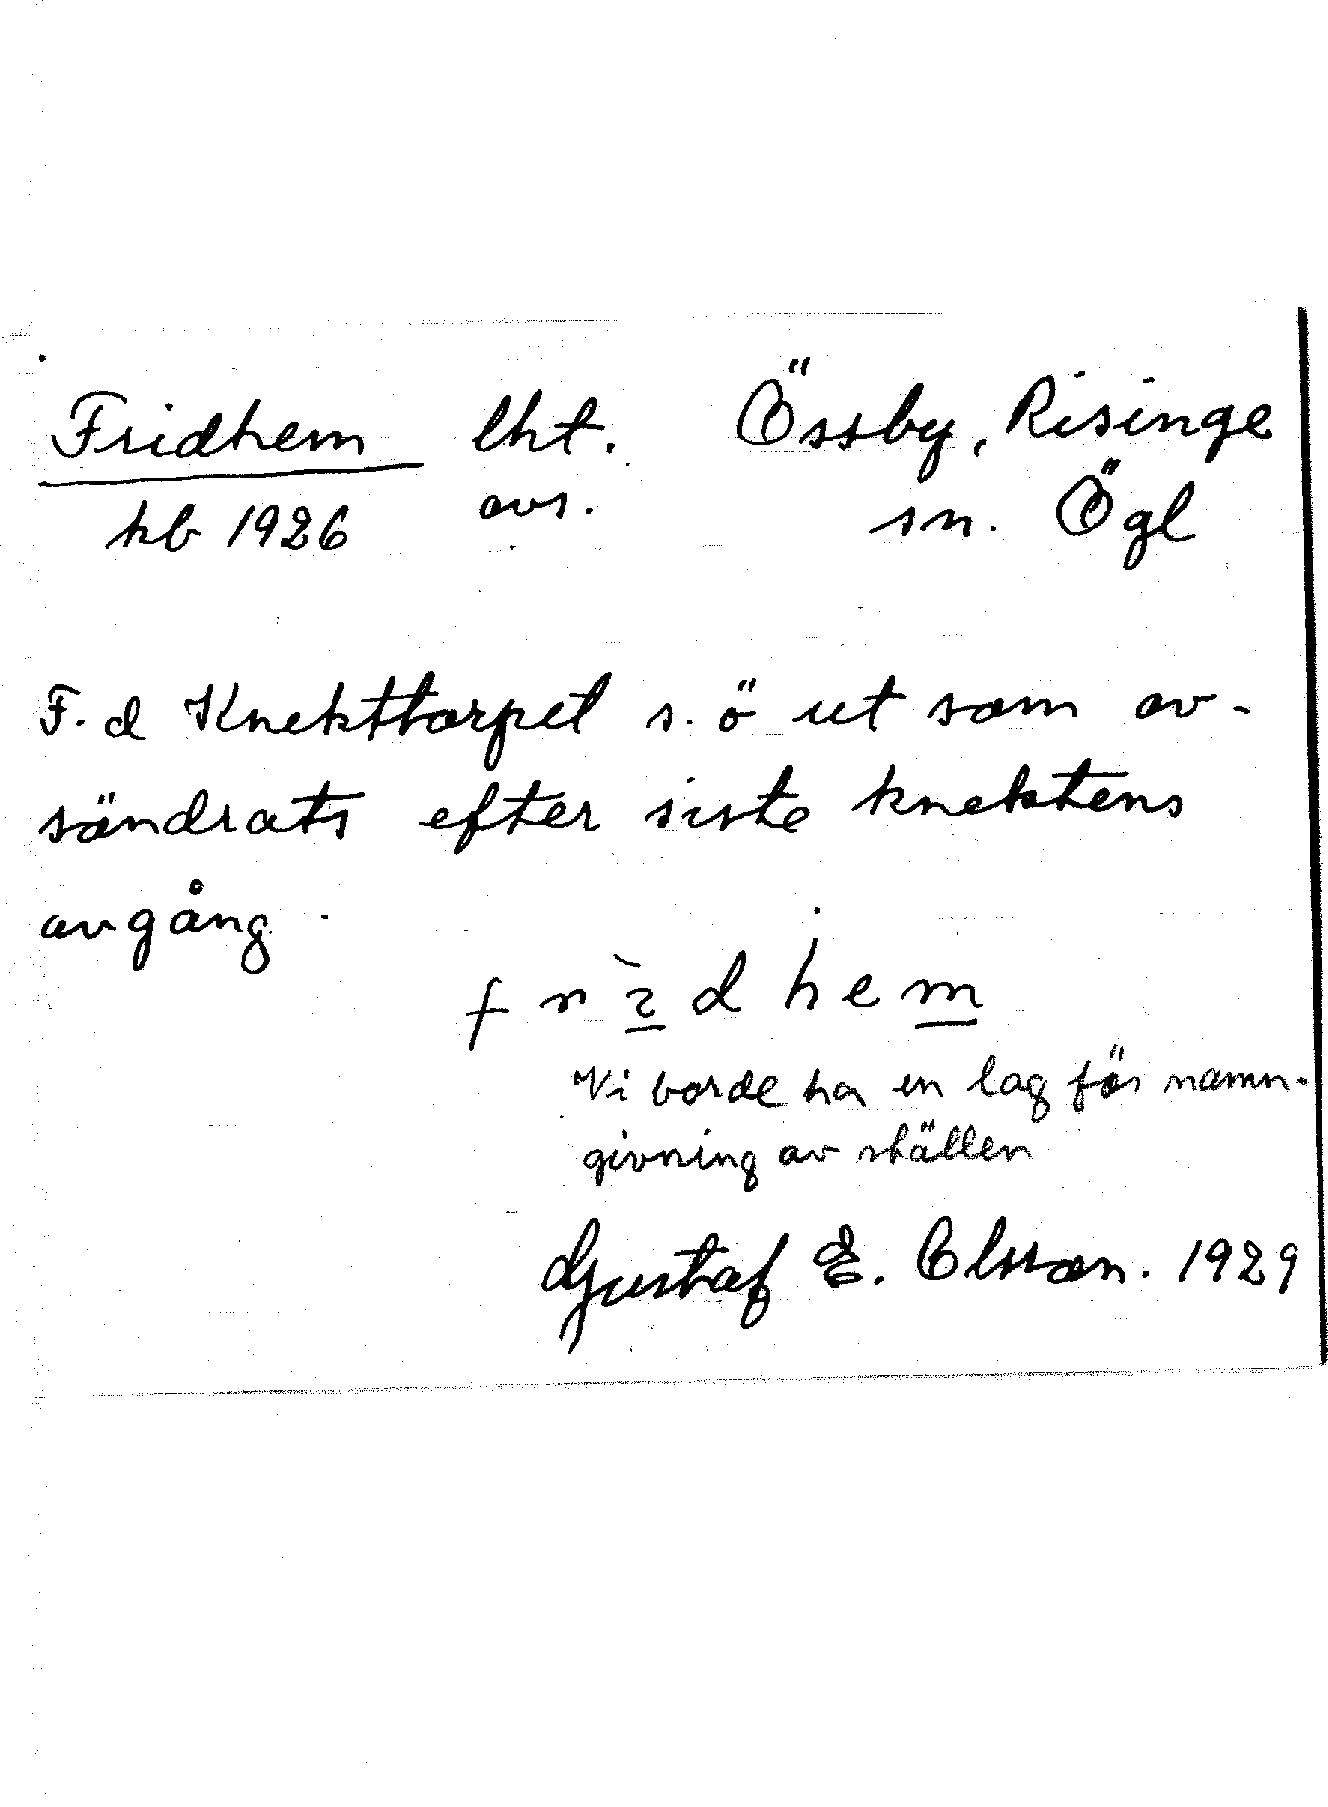 Fridhem lht. Össby, Risinge
kb 1926 avs. sn. Ögl
F. d Knekttorpet s. ö ut som av-
söndrats efter siste knektens
avgång.
Vi borde ha en lag för namn-
givning av ställen
Gustaf E. Olsson. 1929